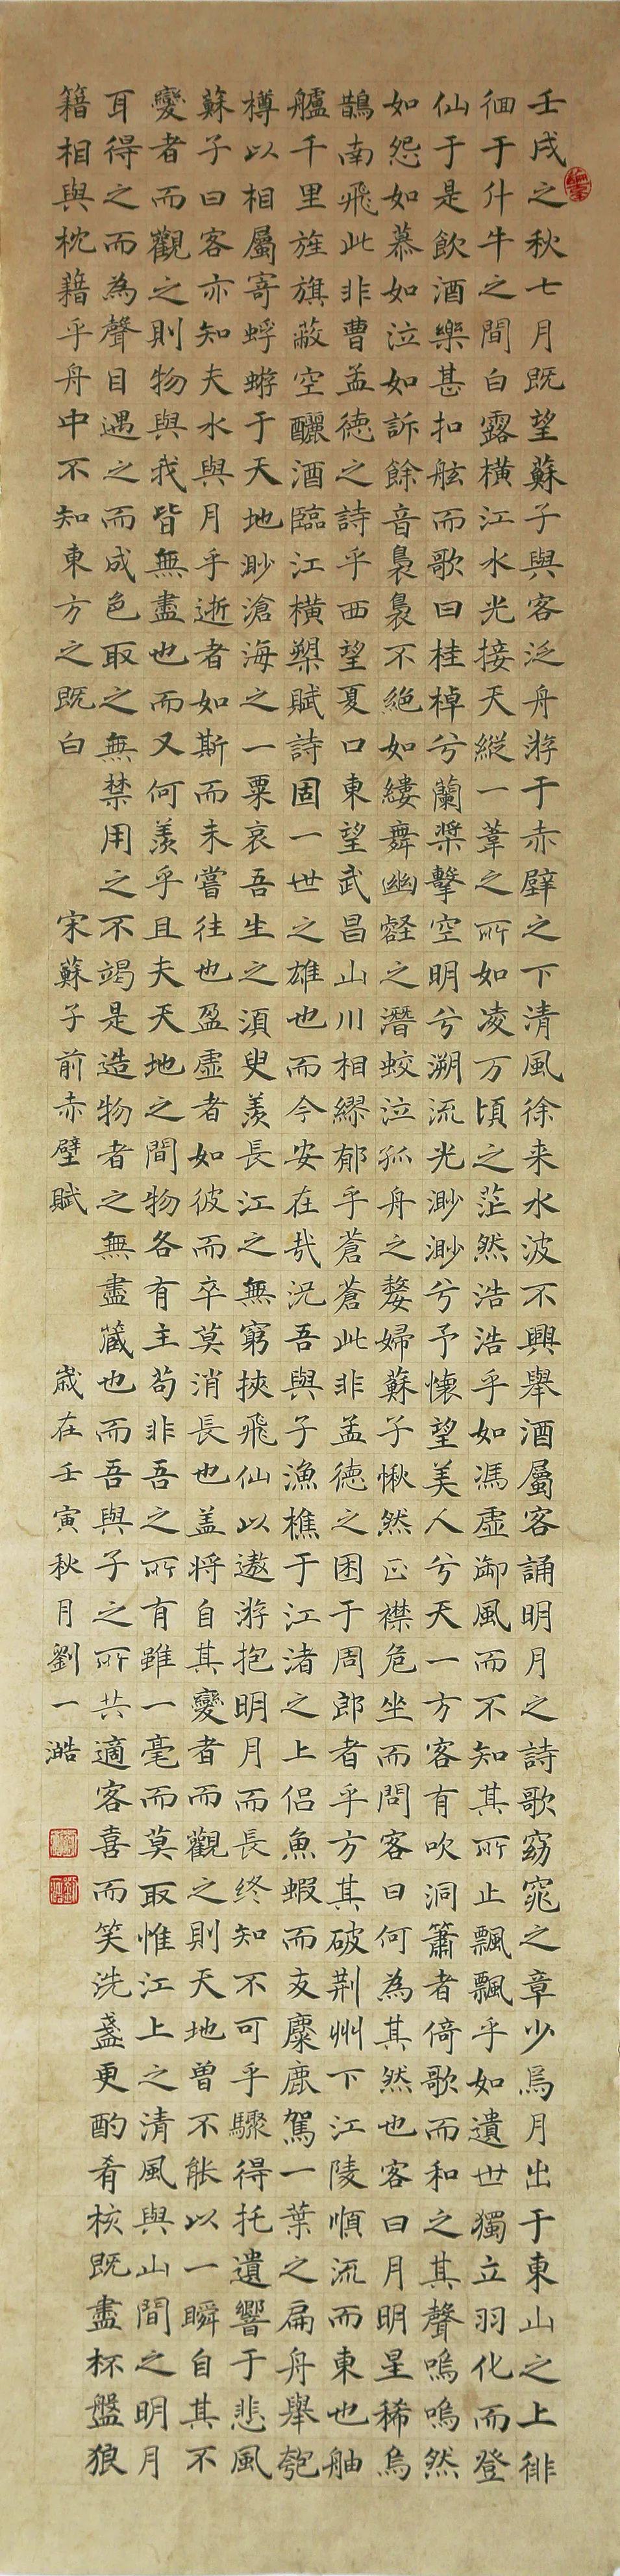 壬戌之秋七月既望蘇子與客泛舟游于赤壁之下清風徐来水波不興舉酒屬客誦明月之詩歌窈窕之章少焉月出于東山之上徘
徊于什牛之間白露橫江水光接天縱一葦之所如凌万頃之茫然浩浩乎如馮虛御風而不知其所止飄飄乎如遺世獨立羽化而登
仙于是飲酒樂甚扣舷而歌曰桂棹兮蘭槳擊空明兮溯流光渺渺兮予懷望美人兮天一方客有吹洞簫者倚歌而和之其聲嗚嗚然
如怨如慕如泣如訴餘音裊裊不絕如縷舞幽壑之潛蛟泣孤舟之嫠婦蘇子愀然正襟危坐而問客曰何為其然也客曰月明星稀烏
鵲南飛此非曹孟德之詩乎西望夏口東望武昌山川相繆郁乎蒼蒼此非孟德之困于周郎者乎方其破荆州下江陵順流而東也舳
艫千里旌旗蔽空釃酒臨江橫槊賦詩固一世之雄也而今安在哉況吾與子漁樵于江渚之上侶魚蝦而友麋鹿駕一葉之扁舟舉匏
樽以相屬寄蜉蝣于天地渺滄海之一粟哀吾生之須臾羨長江之無窮挾飛仙以遨游抱明月而長终知不可乎驟得托遺響于悲風
蘇子曰客亦知夫水與月乎逝者如斯而未嘗往也盈虛者如彼而卒莫消長也盖将自其變者而觀之則天地曾不能以一瞬自其不
變者而觀之則物與我皆無盡也而又何羨乎且夫天地之間物各有主苟非吾之所有雖一毫而莫取惟江上之清風與山間之明月
耳得之而為聲目遇之而成色取之無禁用之不竭是造物者之無盡藏也而吾與子之所共適客喜而笑洗盞更酌肴核既盡杯盤狼
籍相與枕藉乎舟中不知東方之既白 宋蘇子前赤壁賦 歲在壬寅秋月劉一澔